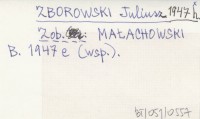 ZBOROWSKI Juliusz 1947 h
Zob. MAŁACHOWSKI
B. 1947 e (wsp.).